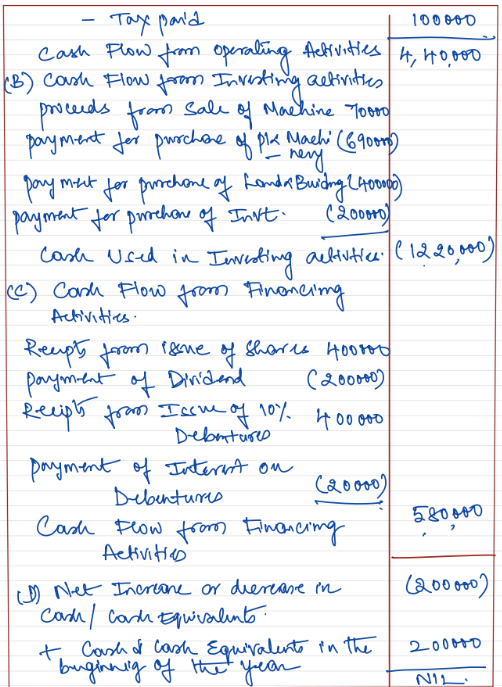 - Tax paid 100000
Cash Flow from operating Activities 4,40,000
(B) Cash Flow from Investing activities
proceeds from Sale of Machine 70000
payment for purchase of pl& Machi (690000)
- nery
payment for purchase of Land&Buidng (400000)
payment for purchase of Invt. (200000)
Cash Used in Investing activities. (1220,000)
(C) Cash Flow from Financing
Activities.
Receipts from issue of Shares 400000
payment of Dividend (200000)
Receipts from Issue of 10% 400000
Debentures
payment of Interest on
Debentures (20000)
580,000
Cash Flow from Financing
Activities
(D) Net Increase or decrease in (200000)
Cash/ Cash Equivalents.
+ Cash & Cash Equivalents in the 200000
buginnig of the year
NIL.